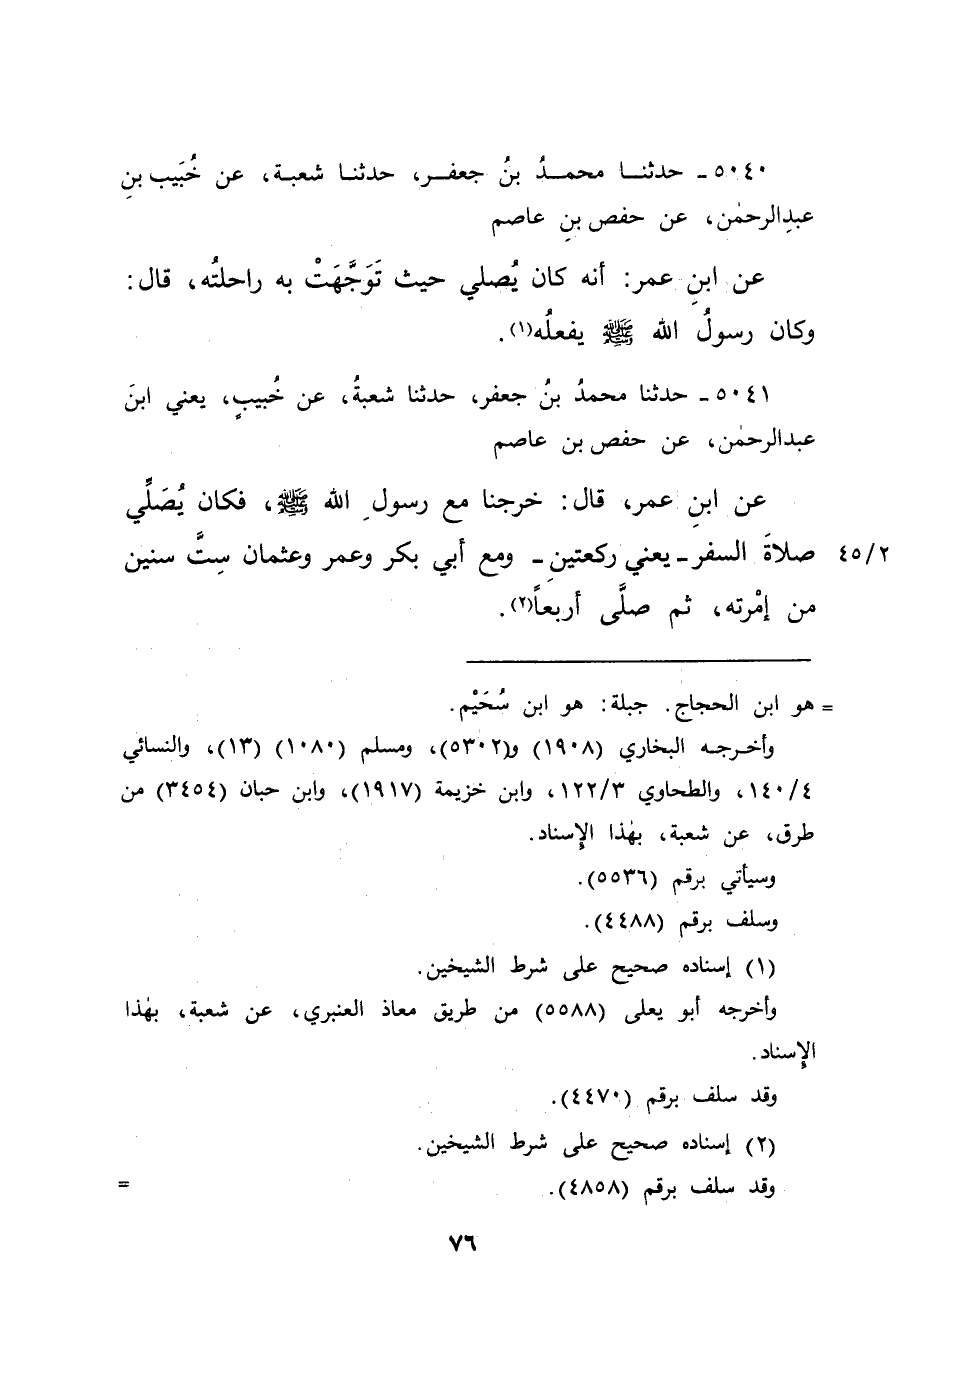 ٥٠٤٠ ـ حدثنـــا محمـــدُ بنُ جعفـــر، حدثنــا شعبـة، عن خُبَيب بنِ
عبدِالرحمٰن، عن حفص بنِ عاصم
عن ابنِ عمر: أنه كان يُصلي حيث تَوَجَّهَتْ به راحلتُه، قال:
وكان رسولُ الله ﷺ يفعلُه(١).
٥٠٤١ ـ حدثنا محمدُ بنُ جعفر، حدثنا شعبةُ، عن خُبيبٍ، يعني ابنَ
عبدالرحمٰن، عن حفص بن عاصم
عن ابنِ عمر، قال: خرجنا مع رسولِ الله ﷺ، فكان يُصَلِّي
٤٥/٢ صلاةَ السفر ـ يعني ركعتينِ ـ ومع أبي بكر وعمر وعثمان سِتَّ سنين
من إمْرته، ثم صلَّى أربعاً(٢).
= هو ابن الحجاج. جبلة: هو ابن سُحَيْم.
وأخـرجـه البخاري (١٩٠٨) و(٥٣٠٢)، ومسلم (١٠٨٠) (١٣)، والنسائي
١٤٠/٤، والطحاوي ١٢٢/٣، وابن خزيمة (١٩١٧)، وابن حبان (٣٤٥٤) من
طرق، عن شعبة، بهٰذا الإسناد.
وسيأتي برقم (٥٥٣٦).
وسلف برقم (٤٤٨٨).
(١) إسناده صحيح على شرط الشيخين.
وأخرجه أبو يعلى (٥٥٨٨) من طريق معاذ العنبري، عن شعبة، بهٰذا
الإسناد.
وقد سلف برقم (٤٤٧٠).
(٢) إسناده صحيح على شرط الشيخين.
وقد سلف برقم (٤٨٥٨). =
٧٦